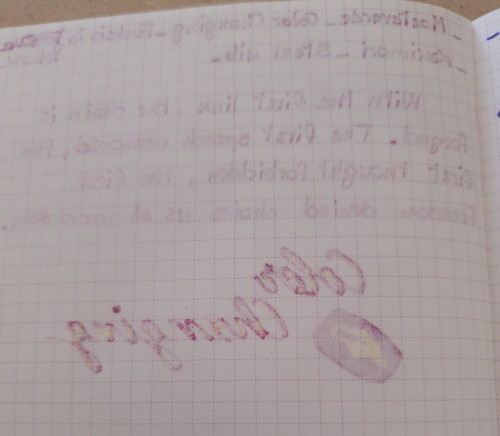 - Monteverde - Color Changing - Purple to
- Kakimori - Steel nib - Yellow
With the first link, the chain is
forged. The first speech censored, the
first thought forbidden, the first
freedom denied chains us all irrevocably.
Color
Changing